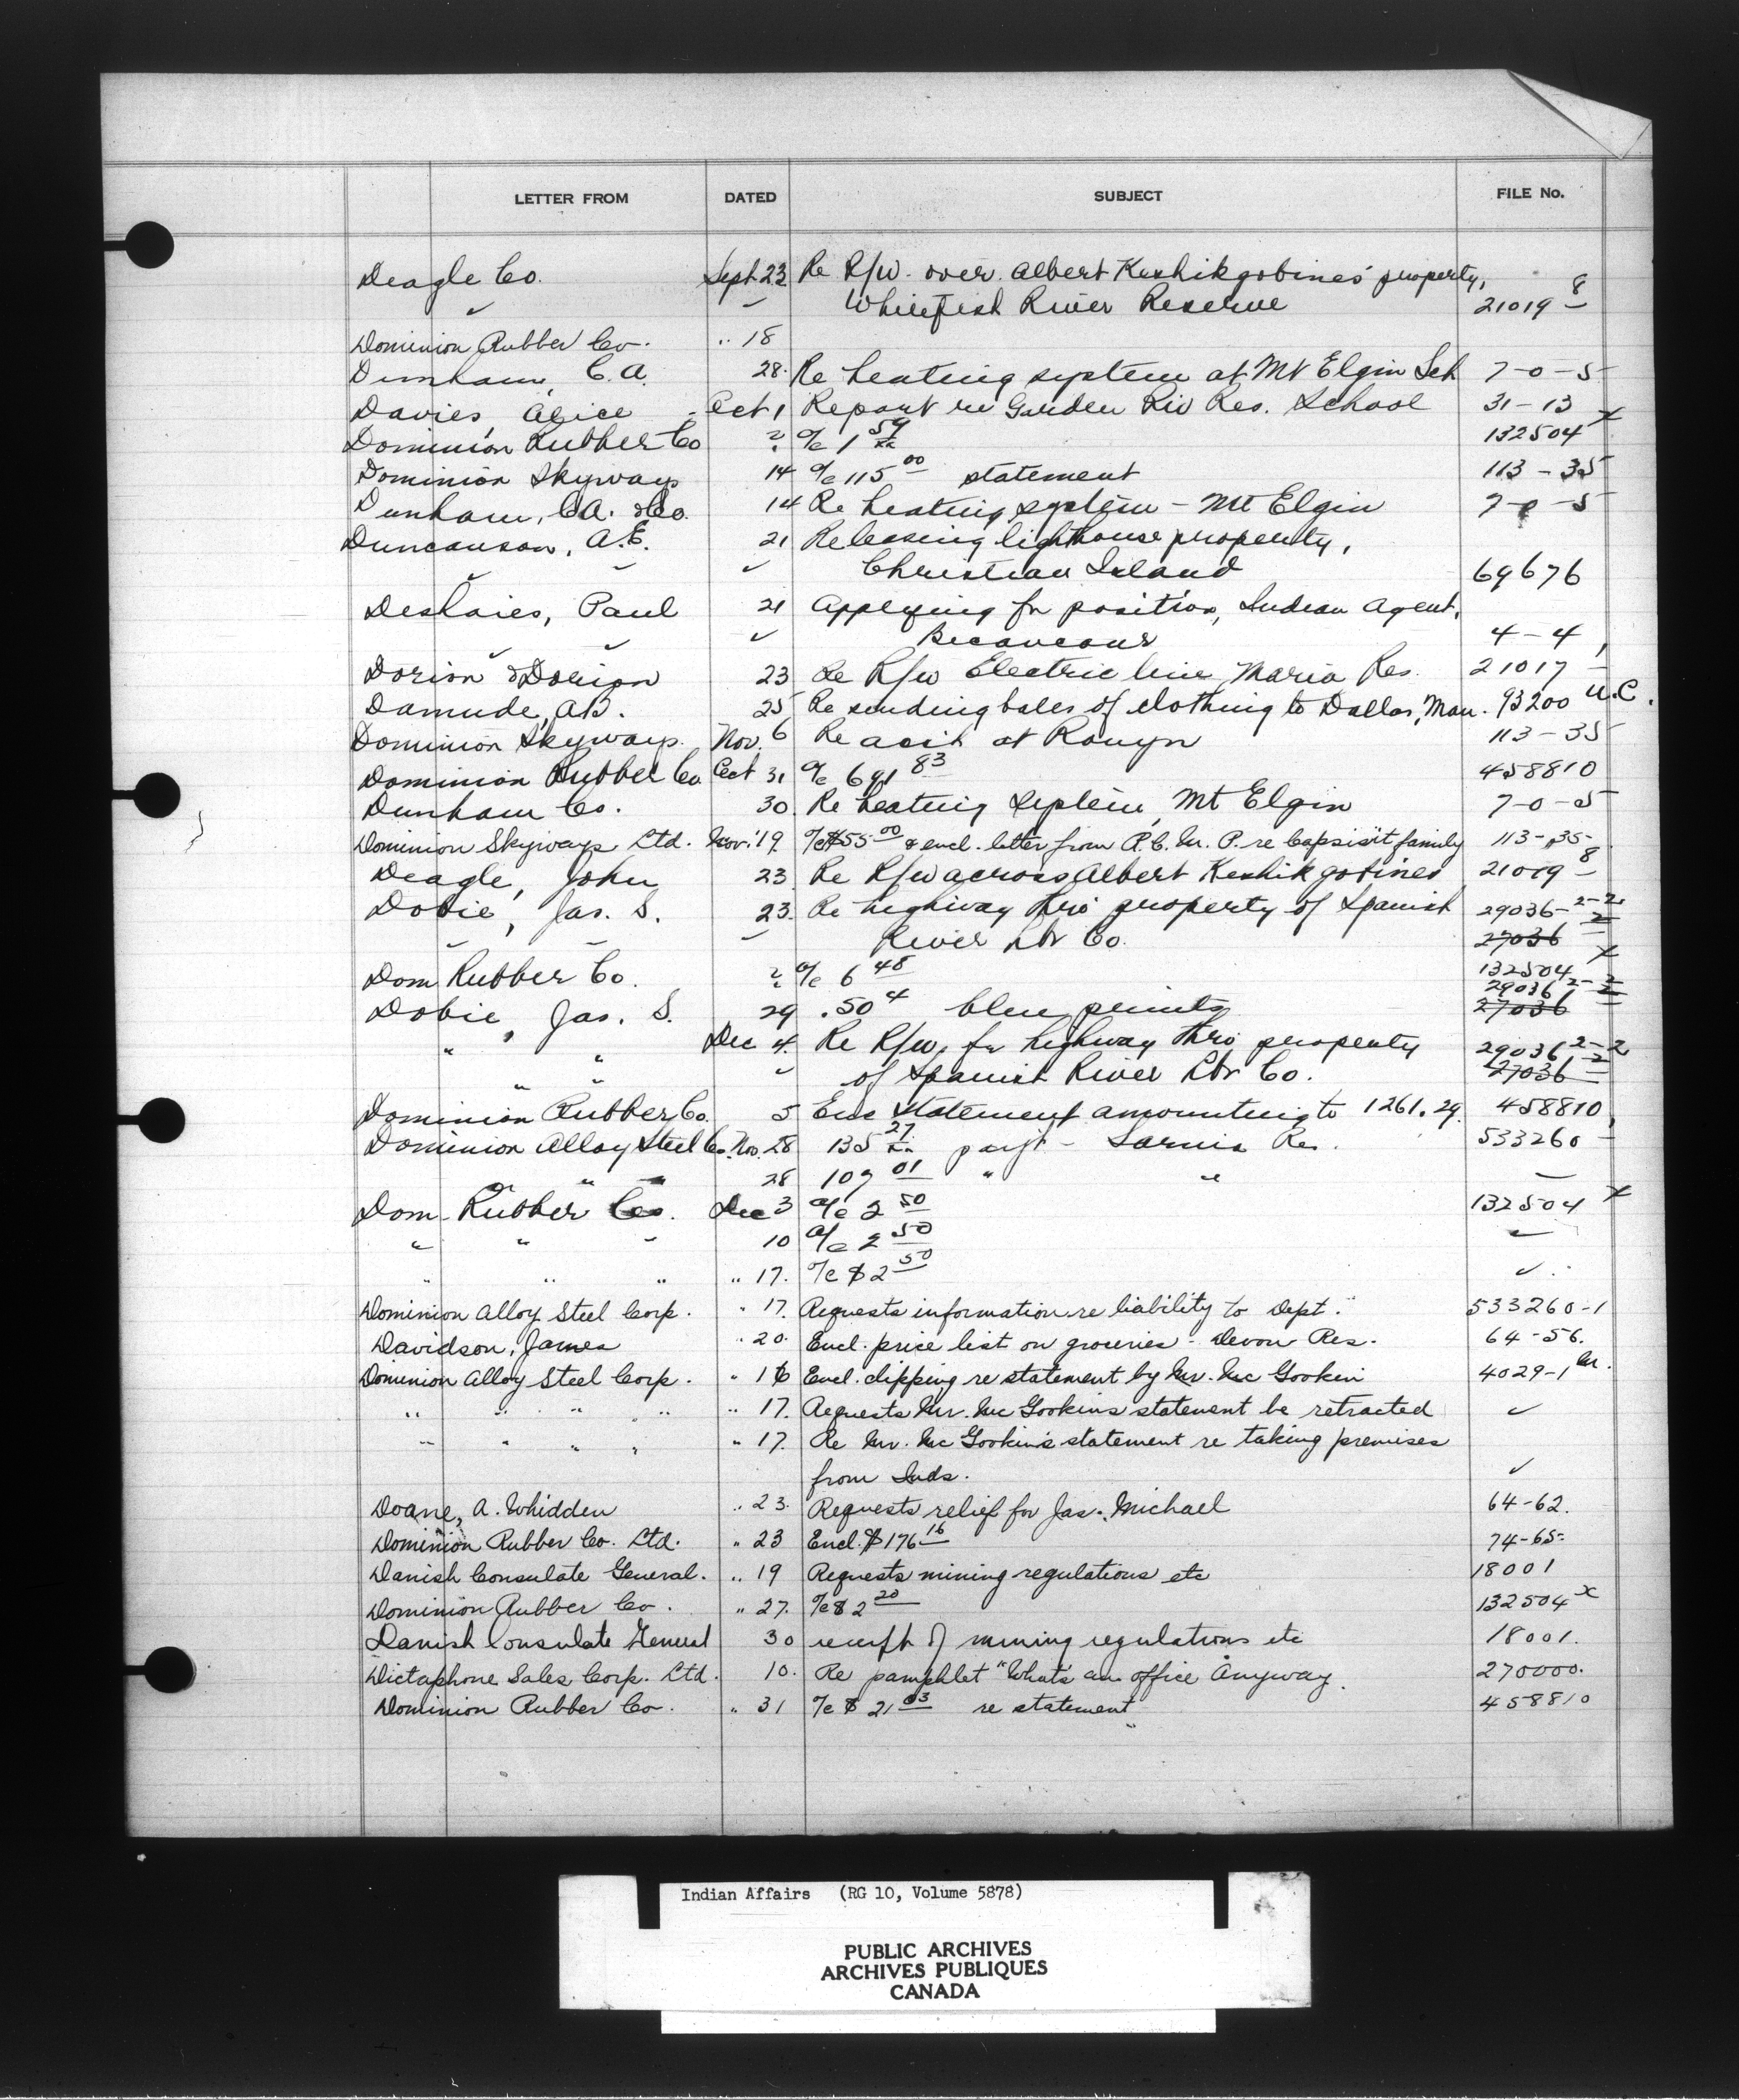 LETTER FROM DATED SUBJECT FILE No.
Deagle Co. Sept 23 Re R/W. over Albert Keshikgobines' property,
Whitefish River Reserve 21019 8
Dominion Rubber Co. " 18
Dunham, C.A. 28. Re heating system at Mt Elgin Sch 7-0-5
Davies, Alice Oct 1 Report re Garden Riv Res. School 31-13
Dominion Rubber Co 2 a/c 1 59 132504 x
Dominion Skyways 14 a/c 115 00 statement 113-35
Dunham, C.A. & Co. 14 Re heating system - Mt Elgin 7-0-5
Duncanson, A.E. 21 Re leasing lighthouse property,
Christian Island 69676
Deslaies, Paul 21 Applying for position, Indian Agent,
Becancour 4-4
Dorion & Dorion 23 Re R/W Electric line Maria Res. 21017
Damude, A.B. 25 Re sending bales of clothing to Dallas, Man. 93200 U.C.
Dominion Skyways. Nov. 6 Re acct at Rouyn 113-35
Dominion Rubber Co. Oct 31 a/c 691 83 458810
Dunham Co. 30. Re heating system, Mt Elgin 7-0-5
Dominion Skyways Ltd. Nov. 19. a/c $55 00 & encl. letter from R.C.M.P. re Capsisit family 113-35
Deagle, John 23 Re R/W across Albert Keshikgobines 21019 8
Dobie, Jas. S. 23. Re highway thro' property of Spanish 29036-2-2
River Lbr Co. 27036
Dom Rubber Co. 2 a/c 6 48 132504 x
Dobie, Jas. S. 29 .50 4 blue prints 29036 2-2 27036
" " Dec 4. Re R/W. for highway thro' property 29036 2-2
" " of Spanish River Lbr Co. 27036
Dominion Rubber Co. 5 Enc statement amounting to 1261.29. 458810
Dominion Alloy Steel Co. Nov. 28 135 27 pay't - Sarnia Res. 533260
" " 28 109 01 " "
Dom. Rubber Co. Dec 3 a/c 2 50 132504 x
" " " 10 a/c 2 50
" " " " 17. a/c $2 50 ✓
Dominion Alloy Steel Corp. " 17. Requests information re liability to Dept. 533260-1
Davidson, James " 20. Encl. price list on groceries - Devon Res. 64-56.
Dominion Alloy Steel Corp. " 16 Encl. clipping re statement by Mr. Mc Gookin 4029-1 M.
" " " " " 17. Requests Mr. Mc Gookins statement be retracted ✓
" " " " " 17. Re Mr. Mc Gookin's statement re taking premises
from Inds. ✓
Doane, A. Whidden " 23. Requests relief for Jas. Michael 64-62.
Dominion Rubber Co. Ltd. " 23 Encl. $176 16 74-65
Danish Consulate General. " 19 Requests mining regulations etc 18001
Dominion Rubber Co. " 27. a/c $2 20 132504 x
Danish Consulate General 30 receipt of mining regulations etc 18001.
Dictaphone Sales Corp. Ltd. 10. Re pamphlet "Whats an office Anyway. 270000.
Dominion Rubber Co. " 31 a/c $21 03 re statement 458810
Indian Affairs (RG 10, Volume 5878)
PUBLIC ARCHIVES
ARCHIVES PUBLIQUES
CANADA